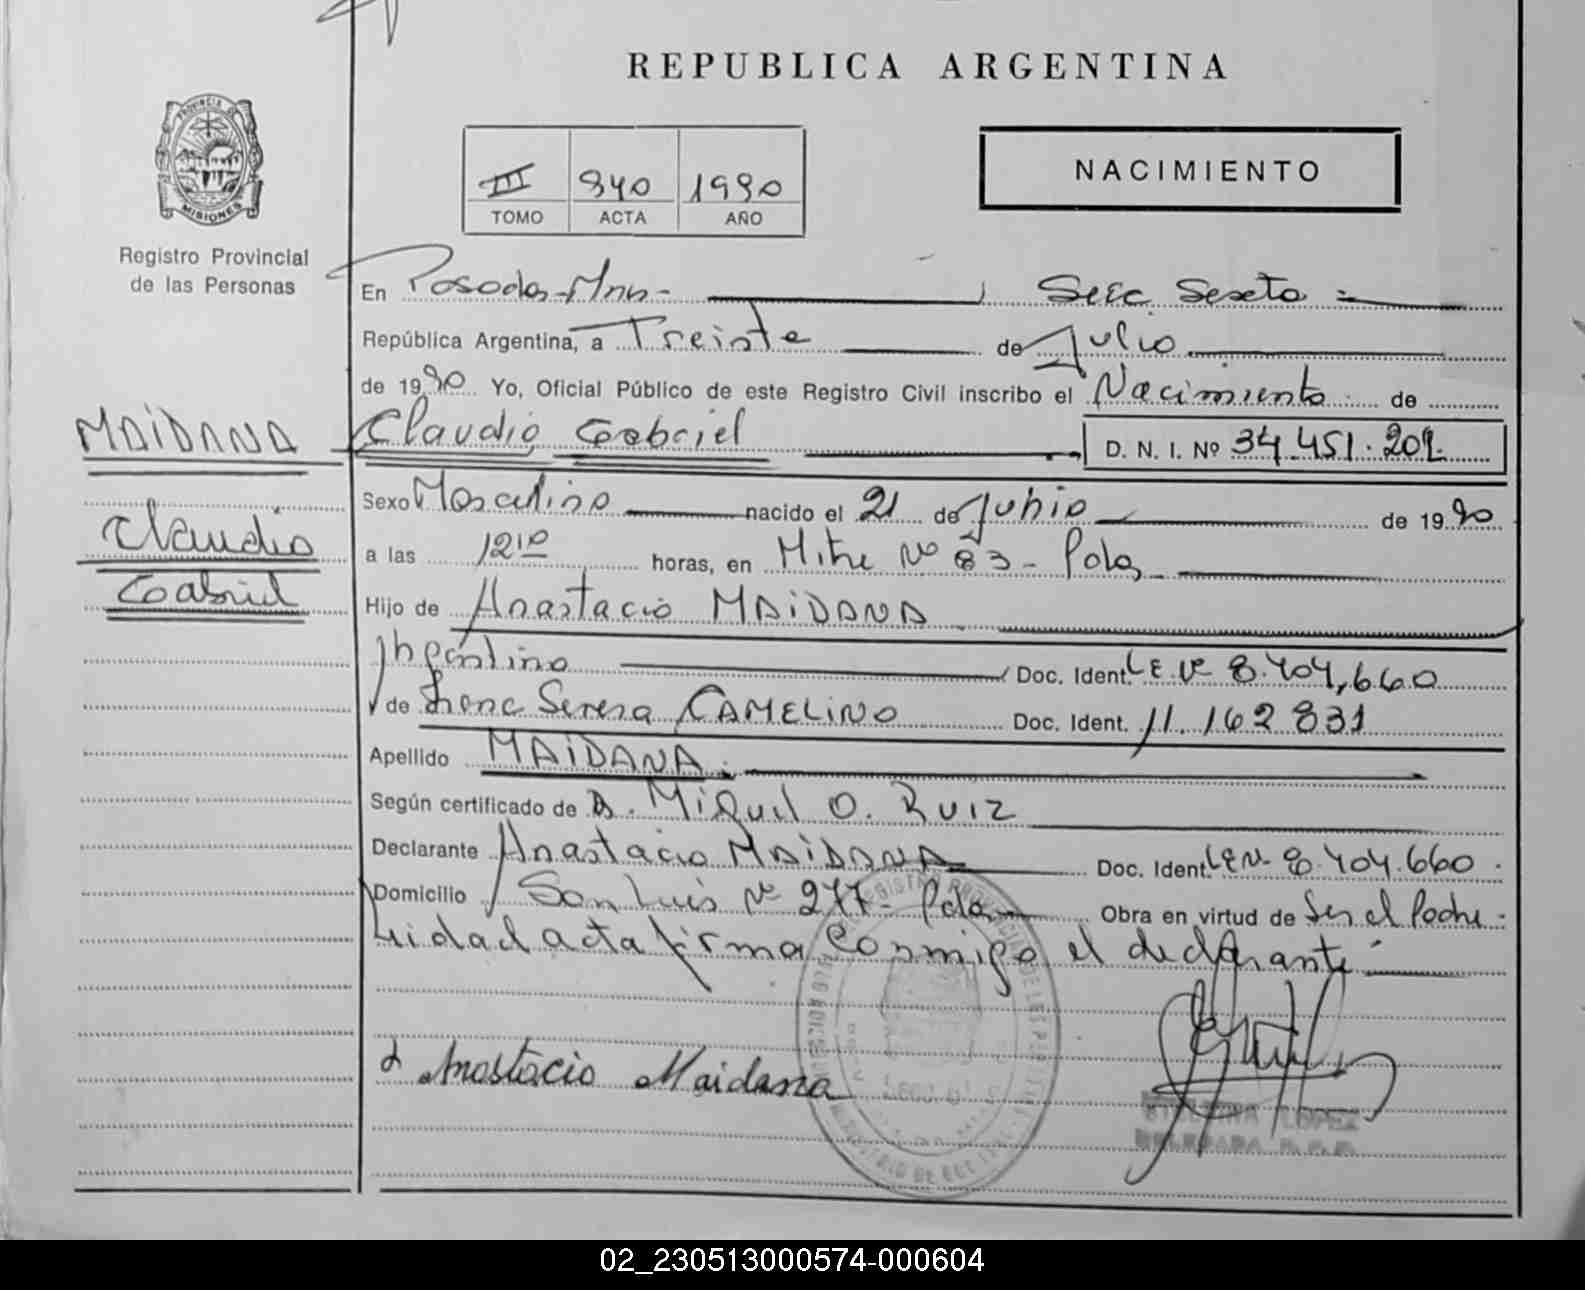 REPUBLICA ARGENTINA
PROVINCIA DE
MISIONES
Registro Provincial
de las Personas
III 940 1990
TOMO ACTA AÑO
NACIMIENTO
En Posadas-Mnes- Secc Sexta
República Argentina, a Treinta de Julio
de 1990 Yo, Oficial Público de este Registro Civil inscribo el Nacimiento de
MAIDANA
Claudio Gabriel D. N. I. Nº 34.451.202
Claudio
Gabriel
Sexo Masculino nacido el 21 de Junio de 1990
a las 12 10 horas, en Mitre Nº 83 - Pdas
Hijo de Anastacio MAIDANA
Argentino Doc. Ident. L.E.Nº 8.404,660
de Irene Seresa CAMELINO Doc. Ident. 11.162831
Apellido MAIDANA
Según certificado de Dr. Miguel O. Ruiz
Declarante Anastacio MAIDANA Doc. Ident. LEN. 8.404.660
Domicilio San Luis Nº 277 - Pdas Obra en virtud de Ser el Padre
Leida el acta firma conmigo el declarante
Anastacio Maidana
LOPEZ
DELEGADA
02_230513000574-000604